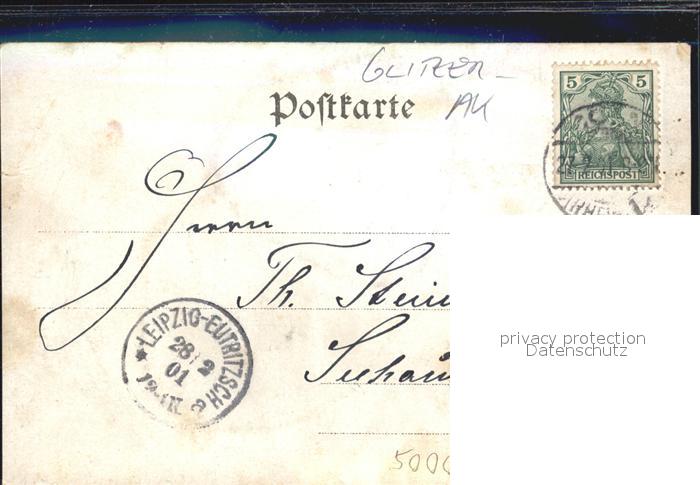 GLITZER-
AK
Postkarte
5 5
REICHSPOST
Herrn
Th. Stein
LEIPZIG-EUTRITZSCH
28 2
01
privacy protection
Datenschutz
5000